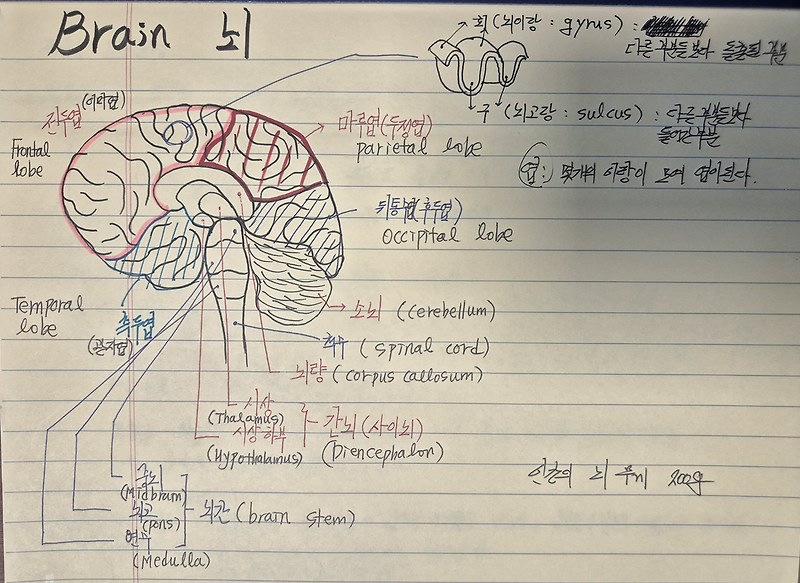 Brain 뇌
회 (뇌이랑 : gyrus) :
다른 부분들보다 돌출된 부분
구 (뇌고랑 : sulcus) : 다른 부분들보다
들어간 부분
엽 : 몇개의 이랑이 모여 엽이된다.
전두엽 (이마엽)
Frontal
lobe
마루엽(두정엽)
parietal lobe
뒤통수엽(후두엽)
Occipital lobe
Temporal
lobe
측두엽
(관자엽)
소뇌 (cerebellum)
척수 (spinal cord)
뇌량 (corpus callosum)
시상
(Thalamus)
시상하부
(Hypothalamus)
간뇌 (사이뇌)
(Diencephalon)
중뇌
(Midbrain)
뇌교
(pons)
연수
(Medulla)
뇌간 (brain stem)
뇌 무게